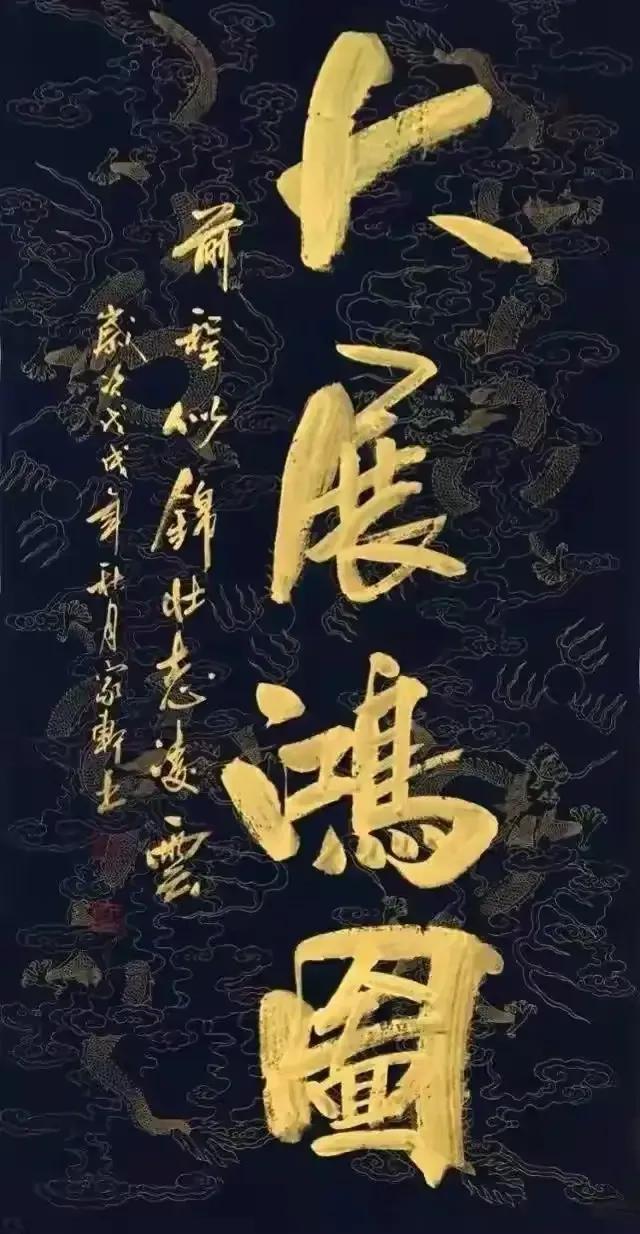 大展鴻圖
前程似錦壮志凌雲
歲次戊戌年秋月家軒上